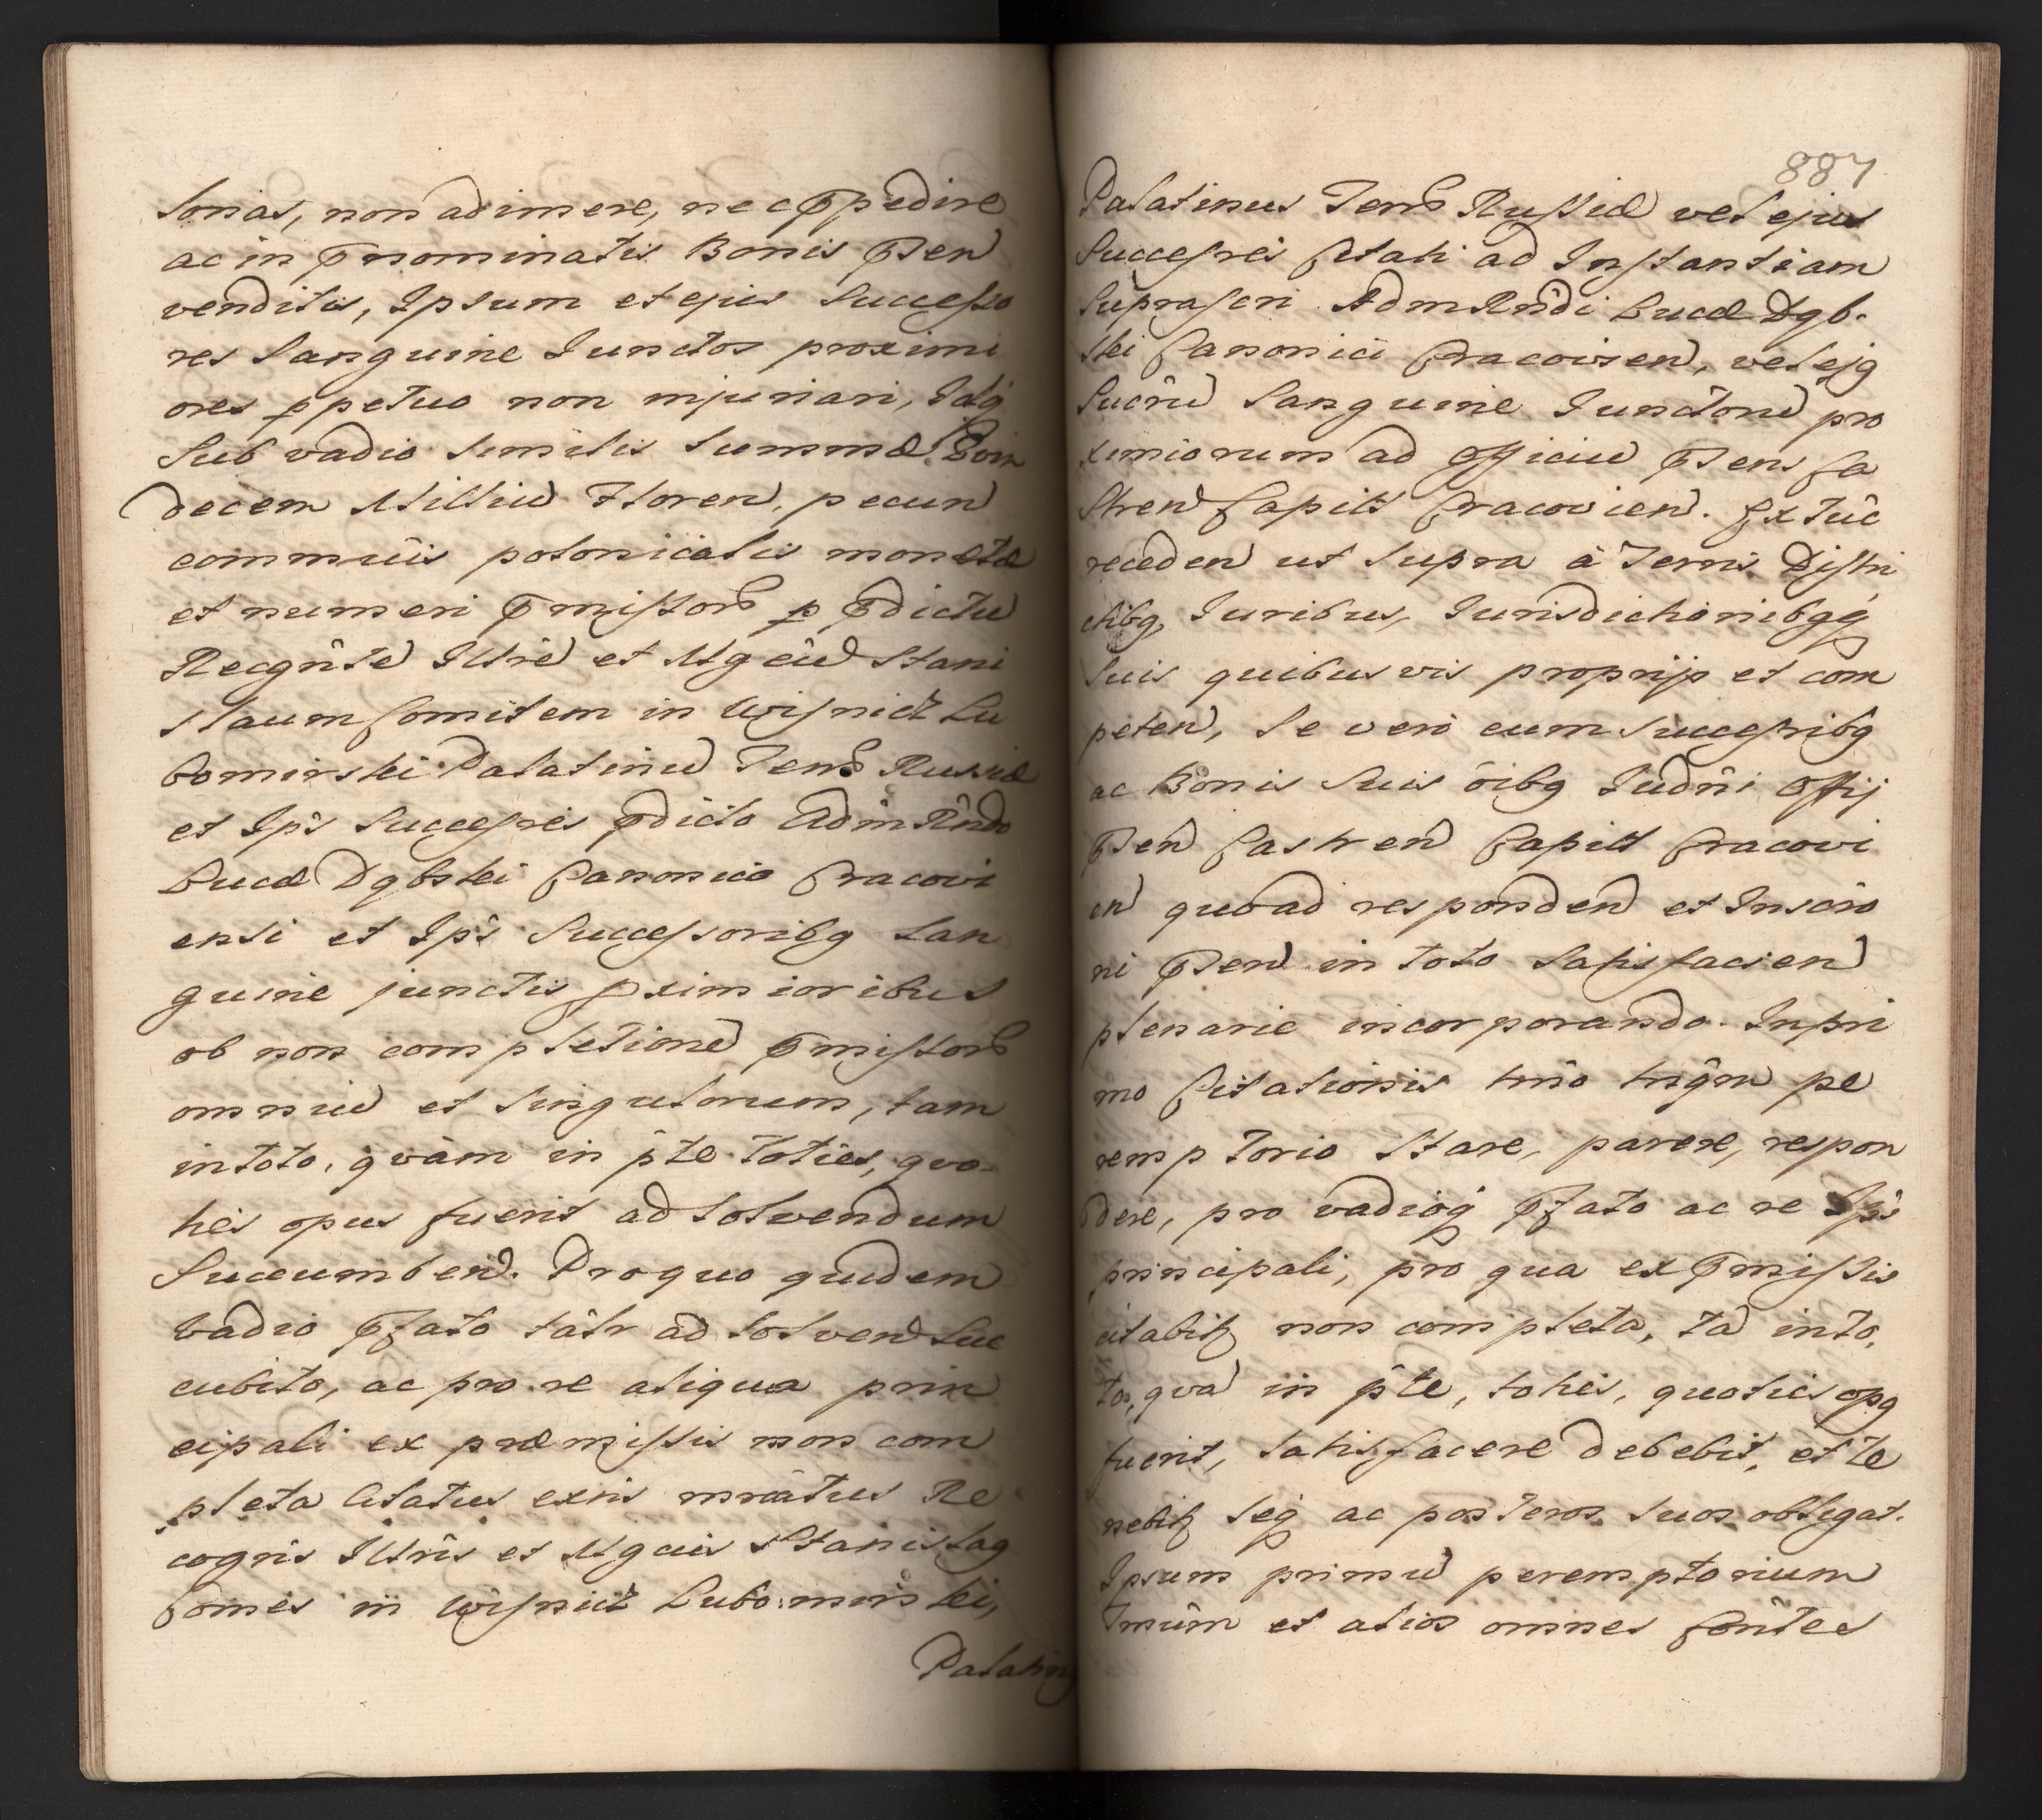 sonas, non adimere, nec p̄pedire
ac in p̄nominatis Bonis p̄sen
venditis, Ipsum et ejus Successo
res Sanguine Junctos proximi
ores ppetuo non injuriari, Idq́
Sub vadio similis Summæ
decem Milliū Floren. pecun
commūis polonicalis monetæ
et numeri p̄missorū p p̄dictū
Recgn̂tē Illrē et Mgcū Stani
slaum Comitem in Wisnicz Lu
bomirski Palatinū Terrū Russiæ
et Ips̄ Successres p̄dicto Adm Rn̂do
Lucæ Dąbski Canonico Cracovi
ensi et Ips̄ Successoribq San
guine junctis pximioribus
ob non completionē p̄missorū
omniū et singulorum, tam
in toto, qvàm in p̂te toties, quo
ties opus fuerit ad solvendum
Succumben. Pro quo quidem
vadio p̄fato tâlr ad solvend suc
cubito, ac pro re aliqua prin
cipali ex præmissis non com
pleta Citatus exin mratus Re
cogn̄s Illrîs et Mgcus Stanislaq
Comes in Wisnicz Lubomirski,
Palatinq
887
Palatinus Terrū Russiæ vel ejus
Successres Citati ad Instantiam
Suprascri Adm Rn̂di Lucæ Dąb-
ski Canonici Cracovien, vel ejq
Sucrū Sanguine Junctorū pro
ximiorum ad Officiū p̄sens Ca
stren Capitt Cracovien. Ex tūc
receden ut supra à Terris Distri
ctibq, Juribus, Jurisdictionibqq́
Suis quibusvis proprijs et com
peten, Se verò cum Successribq
ac Bonis Suis ôibq Judni Offij
p̄sen Castren Capitt Cracovi
en quoad responden et Inscrô
ni p̄sen in toto Satisfacien
plenarie incorporando. In pri
mo Citationis trn̂o tnĝm pe
remptorio Stare, parere, respon
dere, pro vadioq́ p̄fato ac re Ips̄
principali, pro qua ex p̄missis
citabitʒ non completa, tā in to,
to, qvā in p̂te, toties, quoties opq
fuerit, satisfacere debebit, et te
nebitʒ Seq́ ac posteros suos obligat.
Ipsum primū peremptorium
Tmûm et alios omnes Côntes